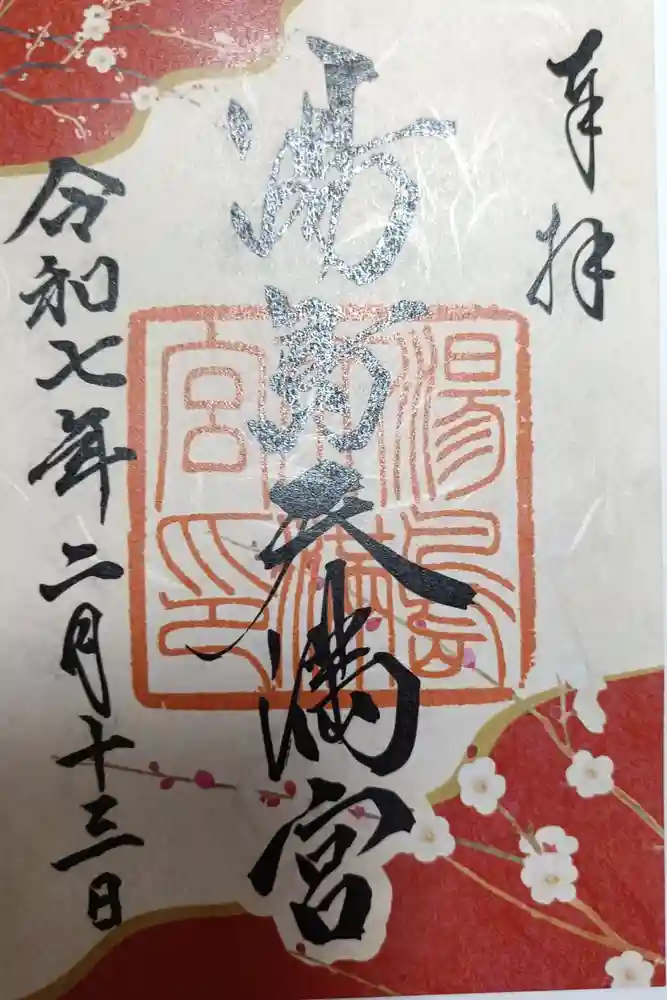 奉拝
湯島天満宮
令和七年二月十三日
湯島
天満
宮印